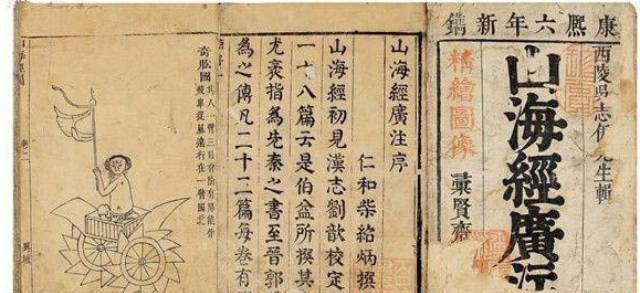 康熙六年新鐫
西陵吳志伊先生輯
山海經廣
精繪圖像
彙賢齋
山海經廣注序
仁和柴紹炳撰
山海經初見漢志劉歆校定
一十八篇云是伯益所撰其
尤袤指為先秦之書至晉郭
為之傳凡二十三篇每卷有
奇肱國
其人一臂三目有陰有陽能作
飛車從風遠行在一臂國北